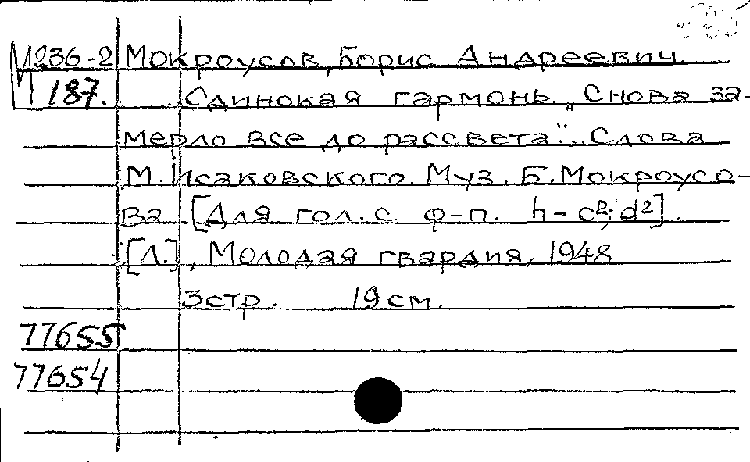 М236-2 Мокроусов, Борис Андреевич.
М187. Одинокая гармонь. „Снова за-
мерло все до рассвета“... Слова
М. Исаковского. Муз. Б. Мокроусо-
ва [Для гол. с ф-п. h - c²; d²].
[Л.], Молодая гвардия, 1948
3стр. 19 см.
77655
77654